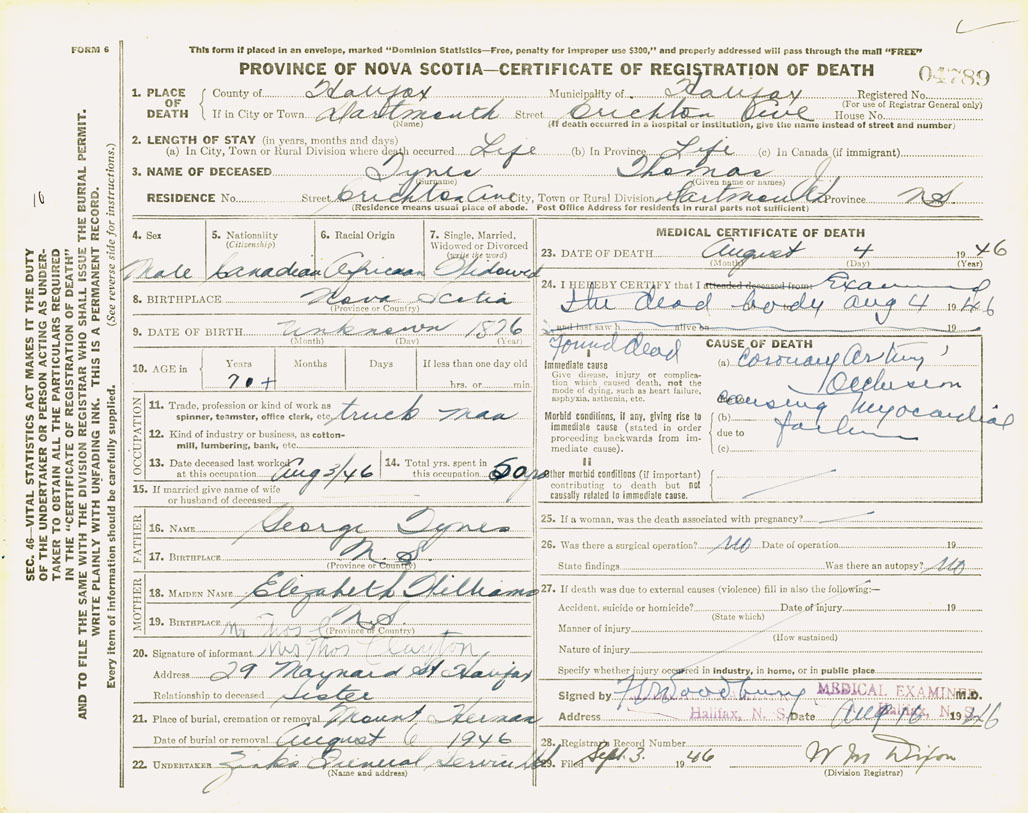 FORM 6
This form if placed in an envelope, marked "Dominion Statistics—Free, penalty for improper use $300," and properly addressed will pass through the mail "FREE"
PROVINCE OF NOVA SCOTIA—CERTIFICATE OF REGISTRATION OF DEATH
04789
1. PLACE OF DEATH
County of Halifax Municipality of Halifax Registered No.
(For use of Registrar General only)
If in City or Town Dartmouth Street Crichton Ave House No.
(Name) (If death occurred in a hospital or institution, give the name instead of street and number)
2. LENGTH OF STAY (in years, months and days)
(a) In City, Town or Rural Division where death occurred Life (b) In Province Life (c) In Canada (if immigrant)
3. NAME OF DECEASED Tynes Thomas
(Surname) (Given name or names)
RESIDENCE No. Street Crichton Ave City, Town or Rural Division Dartmouth Province NS
(Residence means usual place of abode. Post Office Address for residents in rural parts not sufficient)
4. Sex
Male
5. Nationality
(Citizenship)
Canadian
6. Racial Origin
African
7. Single, Married, Widowed or Divorced
(write the word)
Widowed
8. BIRTHPLACE Nova Scotia
(Province or Country)
9. DATE OF BIRTH Unknown 1876
(Month) (Day) (Year)
10. AGE in
Years Months Days If less than one day old
70+ hrs. or min.
OCCUPATION
11. Trade, profession or kind of work as spinner, teamster, office clerk, etc. truck man
12. Kind of industry or business, as cotton-mill, lumbering, bank, etc.
13. Date deceased last worked at this occupation Aug 3/46
14. Total yrs. spent in this occupation 50 yrs
15. If married give name of wife or husband of deceased
FATHER
16. NAME George Tynes
17. BIRTHPLACE N.S.
(Province or Country)
MOTHER
18. MAIDEN NAME Elizabeth Williams
19. BIRTHPLACE N.S.
(Province or Country)
Mr Thos C
20. Signature of informant Mrs Thos Clayton,
Address 29 Maynard St Halifax
Relationship to deceased Sister
21. Place of burial, cremation or removal Mount Herman
Date of burial or removal August 6 1946
22. UNDERTAKER Zinks Funeral Service Ltd
(Name and address)
MEDICAL CERTIFICATE OF DEATH
23. DATE OF DEATH August 4 1946
(Month) (Day) (Year)
24. I HEREBY CERTIFY that I attended deceased from Examined
the dead body Aug 4 1946
and last saw h alive on 19
Found dead
CAUSE OF DEATH
I
Immediate cause
Give disease, injury or complication which caused death, not the mode of dying, such as heart failure, asphyxia, asthenia, etc.
(a) Coronary Artery
Occlusion
causing Myocardial
failure
Morbid conditions, if any, giving rise to immediate cause (stated in order proceeding backwards from immediate cause).
(b)
due to
(c)
II
Other morbid conditions (if important) contributing to death but not causally related to immediate cause.
25. If a woman, was the death associated with pregnancy?
26. Was there a surgical operation? No Date of operation 19
State findings Was there an autopsy? No
27. If death was due to external causes (violence) fill in also the following:—
Accident, suicide or homicide? Date of injury 19
(State which)
Manner of injury
(How sustained)
Nature of injury
Specify whether injury occurred in industry, in home, or in public place
Signed by Woodbury MEDICAL EXAMINER M.D.
Address Halifax, N. S. Date Aug 16 1946
Halifax, N. S.
28. Registrar's Record Number
29. Filed Sept. 3. 1946 W M Dixon
(Division Registrar)
SEC. 46—VITAL STATISTICS ACT MAKES IT THE DUTY
OF THE UNDERTAKER OR PERSON ACTING AS UNDER-
TAKER TO OBTAIN ALL THE PARTICULARS REQUIRED
IN THE "CERTIFICATE OF REGISTRATION OF DEATH"
AND TO FILE THE SAME WITH THE DIVISION REGISTRAR WHO SHALL ISSUE THE BURIAL PERMIT.
WRITE PLAINLY WITH UNFADING INK. THIS IS A PERMANENT RECORD.
Every item of information should be carefully supplied. (See reverse side for instructions.)